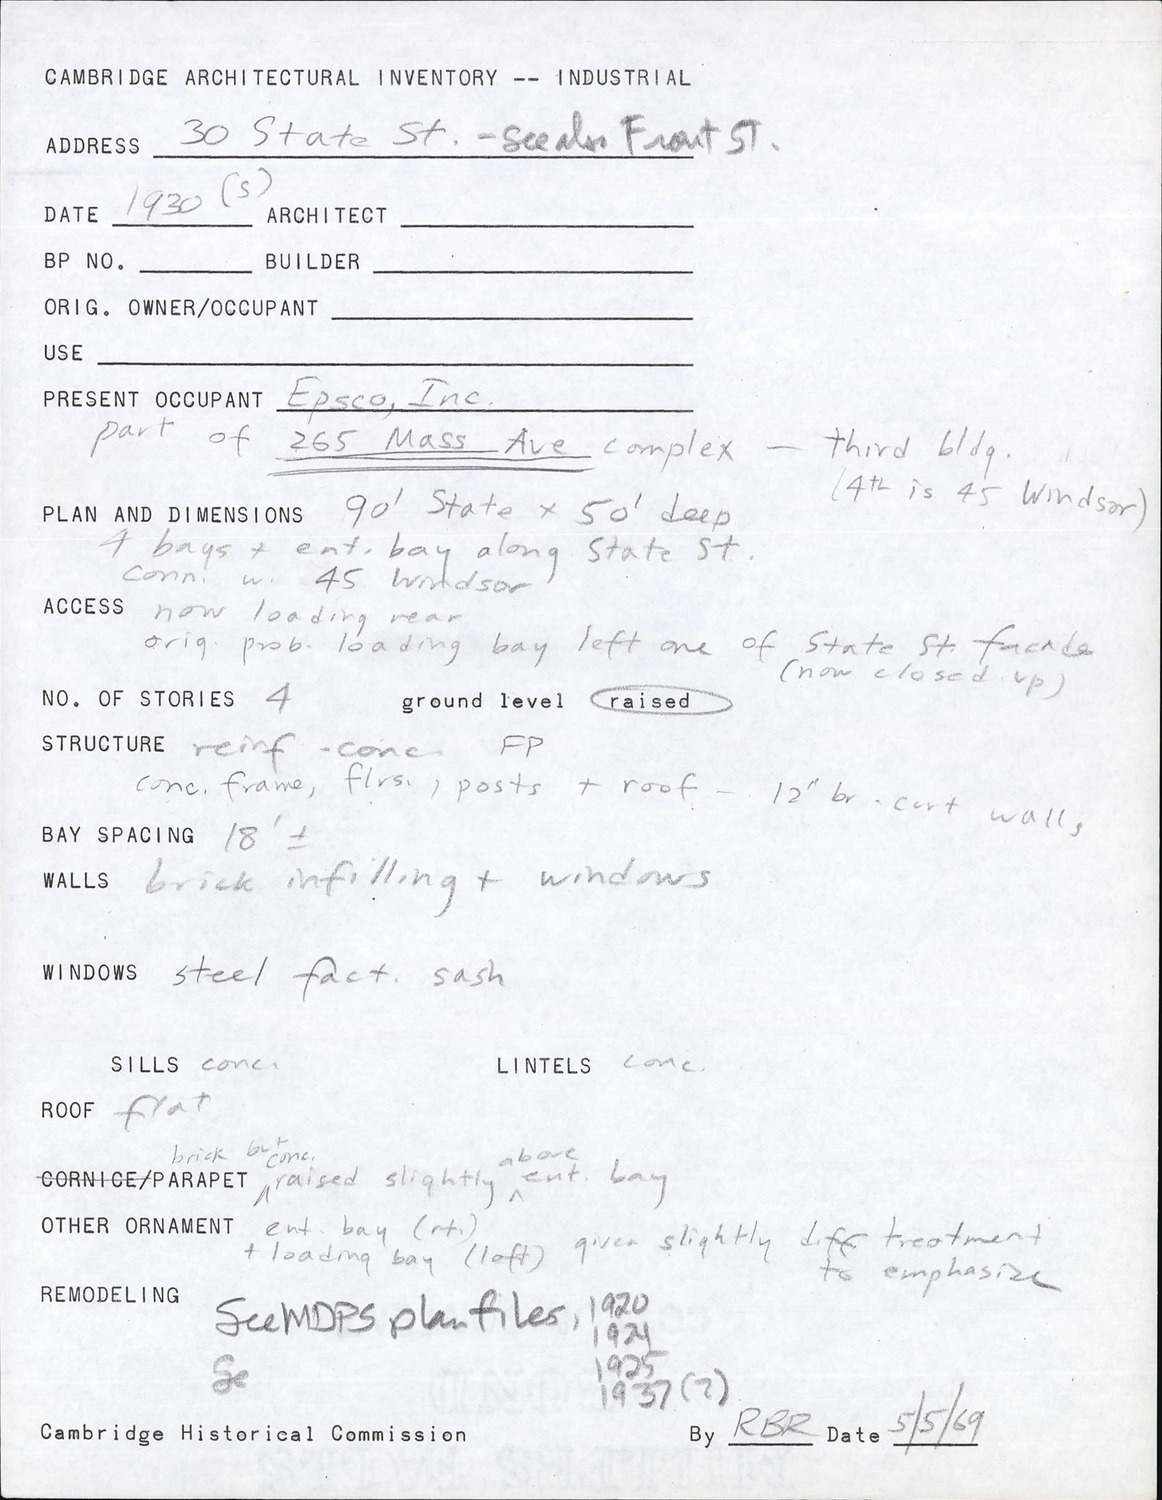 CAMBRIDGE ARCHITECTURAL INVENTORY -- INDUSTRIAL
ADDRESS 30 State St. - see also Front ST.
DATE 1930 (s) ARCHITECT
BP NO. BUILDER
ORIG. OWNER/OCCUPANT
USE
PRESENT OCCUPANT Epsco, Inc.
part of 265 Mass Ave complex — third bldg.
(4th is 45 Windsor)
PLAN AND DIMENSIONS 90' State x 50' deep
4 bays + ent. bay along State St.
conn. w. 45 Windsor
ACCESS now loading rear
orig. prob. loading bay left one of State St. facade
(now closed up)
NO. OF STORIES 4 ground level raised
STRUCTURE reinf -conc. FP
conc. frame, flrs., posts + roof - 12" br. curt walls
BAY SPACING 18' ±
WALLS brick infilling + windows
WINDOWS steel fact. sash
SILLS conc. LINTELS conc.
ROOF flat
brick but conc. above
CORNICE/PARAPET raised slightly ent. bay
OTHER ORNAMENT ent. bay (rt.)
+ loading bay (left) given slightly diff treatment
to emphasize
REMODELING See MDPS plan files, 1920
1921
Se 1925
1937 (?)
Cambridge Historical Commission By RBR Date 5/5/69